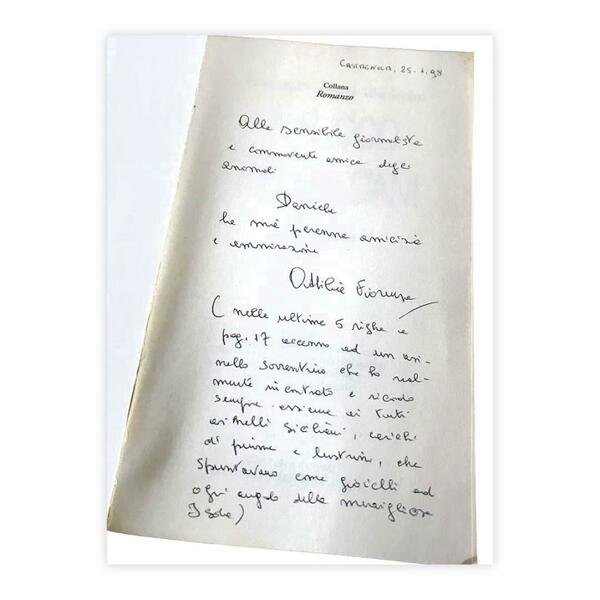 Castagnola, 25.1.98.
Collana
Romanzo
Alla sensibile giornalista
e commovente amica degli
animali
Daniela
la mia perenne amicizia
e ammirazione
(nelle ultime 5 righe a
pag. 17 accenno ad un asi-
nello sorrentino che ho real-
mente incontrato e ricordo
sempre assieme ai tanti
asinelli siciliani, carichi
di piume e lustrini, che
spuntavano come gioielli ad
ogni angolo della meravigliosa
Isola)